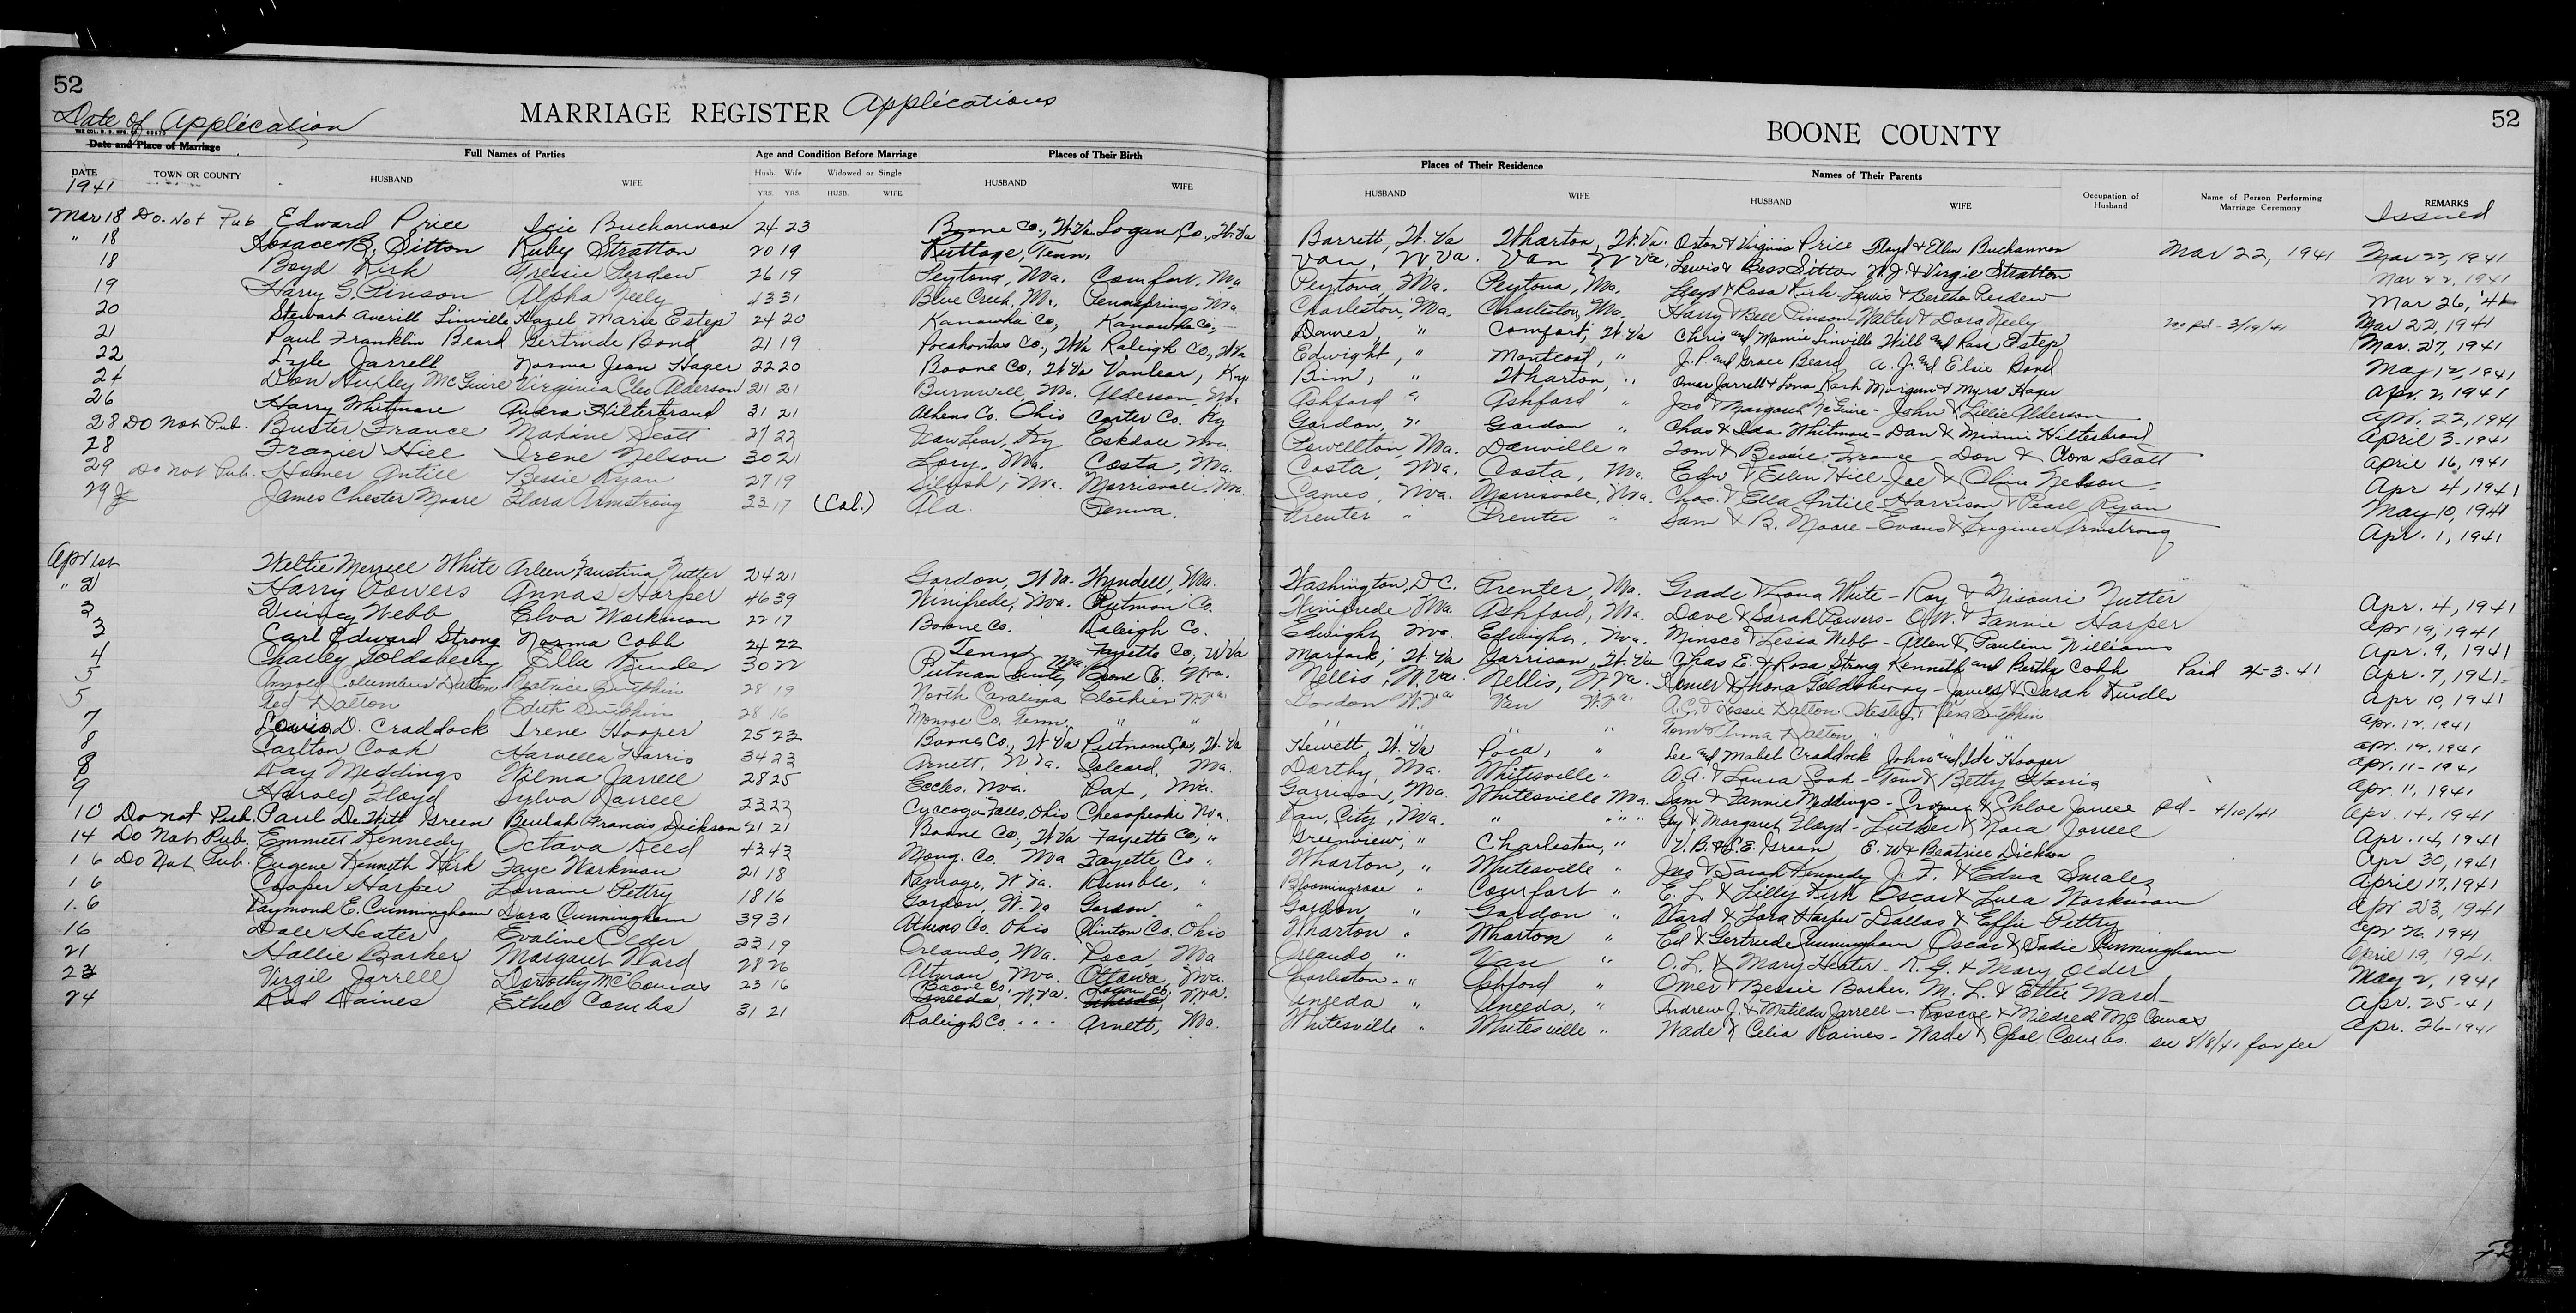 52
Date of Application
THE COL. B. B. MFG. CO. 69670
MARRIAGE REGISTER Applications
BOONE COUNTY
52
Date and Place of Marriage Full Names of Parties Age and Condition Before Marriage Places of Their Birth Places of Their Residence Names of Their Parents Occupation of Husband Name of Person Performing Marriage Ceremony REMARKS
DATE TOWN OR COUNTY HUSBAND WIFE Husb. Wife Widowed or Single HUSBAND WIFE HUSBAND WIFE HUSBAND WIFE Issued
1941 YRS. YRS. HUSB. WIFE
Mar 18 Do. Not Pub Edward Price Icie Buchannan 24 23 Boone Co., W.Va Logan Co., W.Va Barrett, W. Va Wharton, W. Va. Orton & Virginia Price Floyd & Ellen Buchannan Mar 22, 1941 Mar 22, 1941
" 18 Horace B. Sitton Ruby Stratton 20 19 Tenn. Van, W Va. Van W Va. Lewis & Bess Sitton W. J. & Virgie Stratton Mar 22, 1941
18 Boyd Kirk Gressie Perdew 26 19 Peytona, Wva. Comfort, Wva Peytona, Wva. Peytona, Wva. Lloyd & Rosa Kirk Lewis & Bertha Perdew Mar 26, '41
19 Harry G. Pinson Alpha Neely 43 31 Blue Creek, Wva. Pennsprings Wva. Charleston, Wva. Charleston, Wva. Harry & Pinson - Walter & Dora Neely pd - 3/19/41 Mar 22, 1941
20 Stewart Averill Linville Hazel Marie Estep 24 20 Kanawha Co, Kanawha Co, Dawes, " Comfort, W Va Chris and Mamie Linville Will and Rosa Estep Mar. 27, 1941
21 Paul Franklin Beard Gertrude Bond 21 19 Pocahontas Co., W.Va Raleigh Co., W.Va Edwight, " Montcoal, " J. P. and Grace Beard A. J. and Elsie Bond May 12, 1941
22 Lyle Jarrell Norma Jean Hager 22 20 Boone Co, W Va Vanlear, Ky Bim, " Wharton, " Omar Jarrell & Lona Rash & Myrse Hager Apr. 2, 1941
24 Don Huxley McGuire Virginia Cleo Alderson 21 21 Burnwell, Wva. Alderson, Wva. Ashford " Ashford " Jno & Margaret McGuire - John & Lillie Alderson Apr. 22, 1941
26 Harry Whitmore Audra Hilterbrand 31 21 Athens Co. Ohio Carter Co. Ky Gordon, " Gordon " Chas & Ida Whitmore - Dan & Minnie Hilterbrand April 3 - 1941
28 Do not Pub. Buster France Maxine Scott 27 22 Van Lear, Ky Eskdale Wva. Powellton, Wva. Danville " Tom & Bessie France - Don & Clora Scott April 16, 1941
28 Frazier Hill Irene Nelson 30 21 Lory, Wva. Costa, Wva. Costa, Wva. Costa, Wva. Edw & Ellen Hill - Joe & Olive Nelson - Apr 4, 1941
29 Do not Pub. Homer Antill Bessie Ryan 27 19 Silush, Wva. Morrisvale, Wva. Cameo, Wva. Morrisvale, Wva. Chas. & Ella Antill - Harrison & Pearl Ryan May 10, 1941
29 James Chester Moore Flora Armstrong 33 17 (Col.) Ala. Penna. Prenter " Prenter " Sam & B. Moore - Evans & Armstrong Apr. 1, 1941
Apr 1st Weltie Merrell White Arleen Faustina Nutter 24 21 Gordon, W Va. Wyndell, Wva. Washington, D.C. Prenter, Wva. Grade & Lona White - Roy & Misouri Nutter Apr. 4, 1941
" 2 Harry Powers Annas Harper 46 39 Winifrede, Wva. Putman Co. Winifrede Wva. Ashford, Wva. Dave & Sarah Powers - O.W. & Fannie Harper Apr 19, 1941
3 Quincy Webb Elva Workman 22 17 Boone Co. Raleigh Co. Edwight Wva. Edwight, Wva. & Lessa Webb - Allen & Pauline Williams Apr. 9, 1941
3 Carl Edward Strong Norma Cobb 24 22 Tenn. Fayette Co, W Va Marfork, W. Va Garrison, W. Va Chas E. & Rosa Strong Kenneth and Bertha Cobb Paid 4-3-41 Apr. 7, 1941
4 Charley Goldsberry Ella Kinder 30 22 Putnam County Wva Boone Co. Wva. Nellis, W. Va. Nellis, W. Va. Homer & Goldsberry - & Sarah Kinder Apr 10, 1941
5 Arnold Columbus Dalton Beatrice Sutphin 28 19 North Carolina W.Va. Gordon W.Va Van W.Va. A.G. & Cossie Dalton Wesley & Vera Sutphin Apr. 12, 1941
5 Ted Dalton Edith Sutphin 28 16 Monroe Co. Tenn. " " " " " " Tom & Anna Dalton " " " Apr. 12, 1941
7 Louis D. Craddock Irene Hooper 25 23 Boone Co., W.Va Putnam Co., W. Va Hewett, W. Va Poca, " Lee and Mabel Craddock John and Ida Hooper Apr. 11 - 1941
8 Carlton Cook Harvella Harris 34 23 Arnett, W Va. Wva. Dorthy, Wva. Whitesville " A. A. & Laura Cook - Tom & Betty Harris Apr. 11, 1941
8 Ray Meddings Wilma Jarrell 28 25 Eccles, Wva. Pax, Wva. Garrison, Wva. Whitesville Wva. Sam & Fannie Meddings - & Chloe Jarrell pd - 4/10/41 Apr. 14, 1941
9 Harold Floyd Sylva Jarrell 23 22 Cyacoga Falls, Ohio Chesapeake Wva. Dan, City, Wva. " " " " Guy & Margaret Floyd - Luther & Nora Jarrell Apr. 14, 1941
10 Do not Pub. Paul DeWitt Green Beulah Francis Dickson 21 21 Boone Co, W Va Fayette Co, " Greenview, " Charleston, " V. B. & L. E. Green E. W & Beatrice Dickson Apr 30, 1941
14 Do Not Pub. Emmett Kennedy Octava Reed 43 43 Mong. Co. Wva Fayette Co " Wharton, " Whitesville " Jno & Sarah Kennedy J. F. & Edna Smales April 17, 1941
16 Do Not Pub. Eugene Kenneth Kirk Faye Workman 21 18 Ramage, W Va. Rumble, " Bloomingrose " Comfort " E. L. & Lilly Kirk Oscar & Lula Workman Apr 23, 1941
16 Cooper Harper Lorraine Pettry 18 16 Gordon, W. Va Gordon " Gordon " Gordon " Ward & Lora Harper - Dallas & Effie Pettry Apr 26 1941
16 Raymond E. Cunningham Dora Cunningham 39 31 Athens Co. Ohio Clinton Co. Ohio Wharton " Wharton " Ed & Gertrude Cunningham Oscar & Sadie Cunningham April 19, 1941
16 Dale Heater Evaline Older 23 19 Orlando, Wva. Poca, Wva Orlando, " Van " O. L. & Mary Heater - R. G. & Mary Older May 2, 1941
21 Hallie Barker Margaret Ward 28 26 Altman, Wva. Ottawa, Wva. Charleston - " Ashford " Omer & Bessie Barker, M. L. & Ettie Ward - Apr. 25-41
23 Virgil Jarrell Dorothy McComas 23 16 Boone Co. Uneeda, W.Va. Logan Co. Uneeda, Wva. Uneeda " Uneeda, " Andrew J. & Matilda Jarrell - Roscoe & Mildred McComas Apr. 26-1941
24 Rad Raines Ethel Combs 31 21 Raleigh Co. . . . . Arnett, Wva. Whitesville " Whitesville " Wade & Celia Raines - Wade & Opal Combs. see 8/8/41 for fee